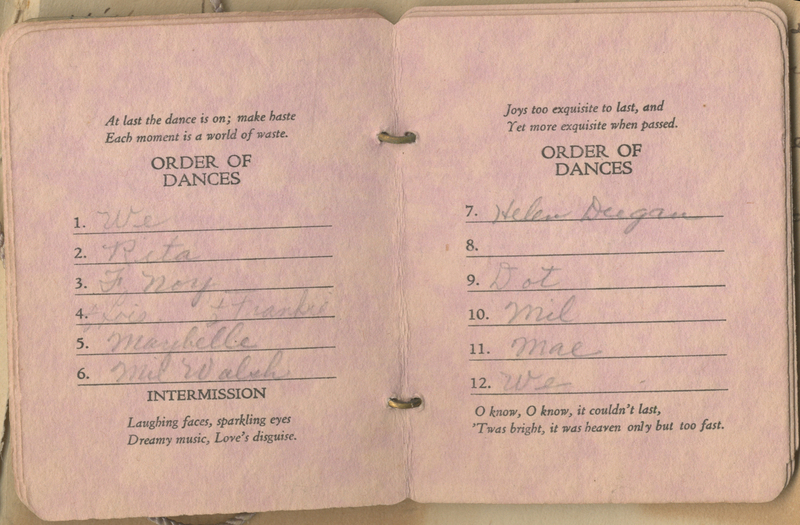 At last the dance is on; make haste
Each moment is a world of waste.
ORDER OF
DANCES
1. We
2. Rita
3. F. Noy
4. Frankie
5. Maybelle
6. Mil Walsh
INTERMISSION
Laughing faces, sparkling eyes
Dreamy music, Love's disguise.
Joys too exquisite to last, and
Yet more exquisite when passed.
ORDER OF
DANCES
7. Helen Deegan
8.
9. Dot
10. Mil
11. Mae
12. We
O know, O know, it couldn't last,
'Twas bright, it was heaven only but too fast.